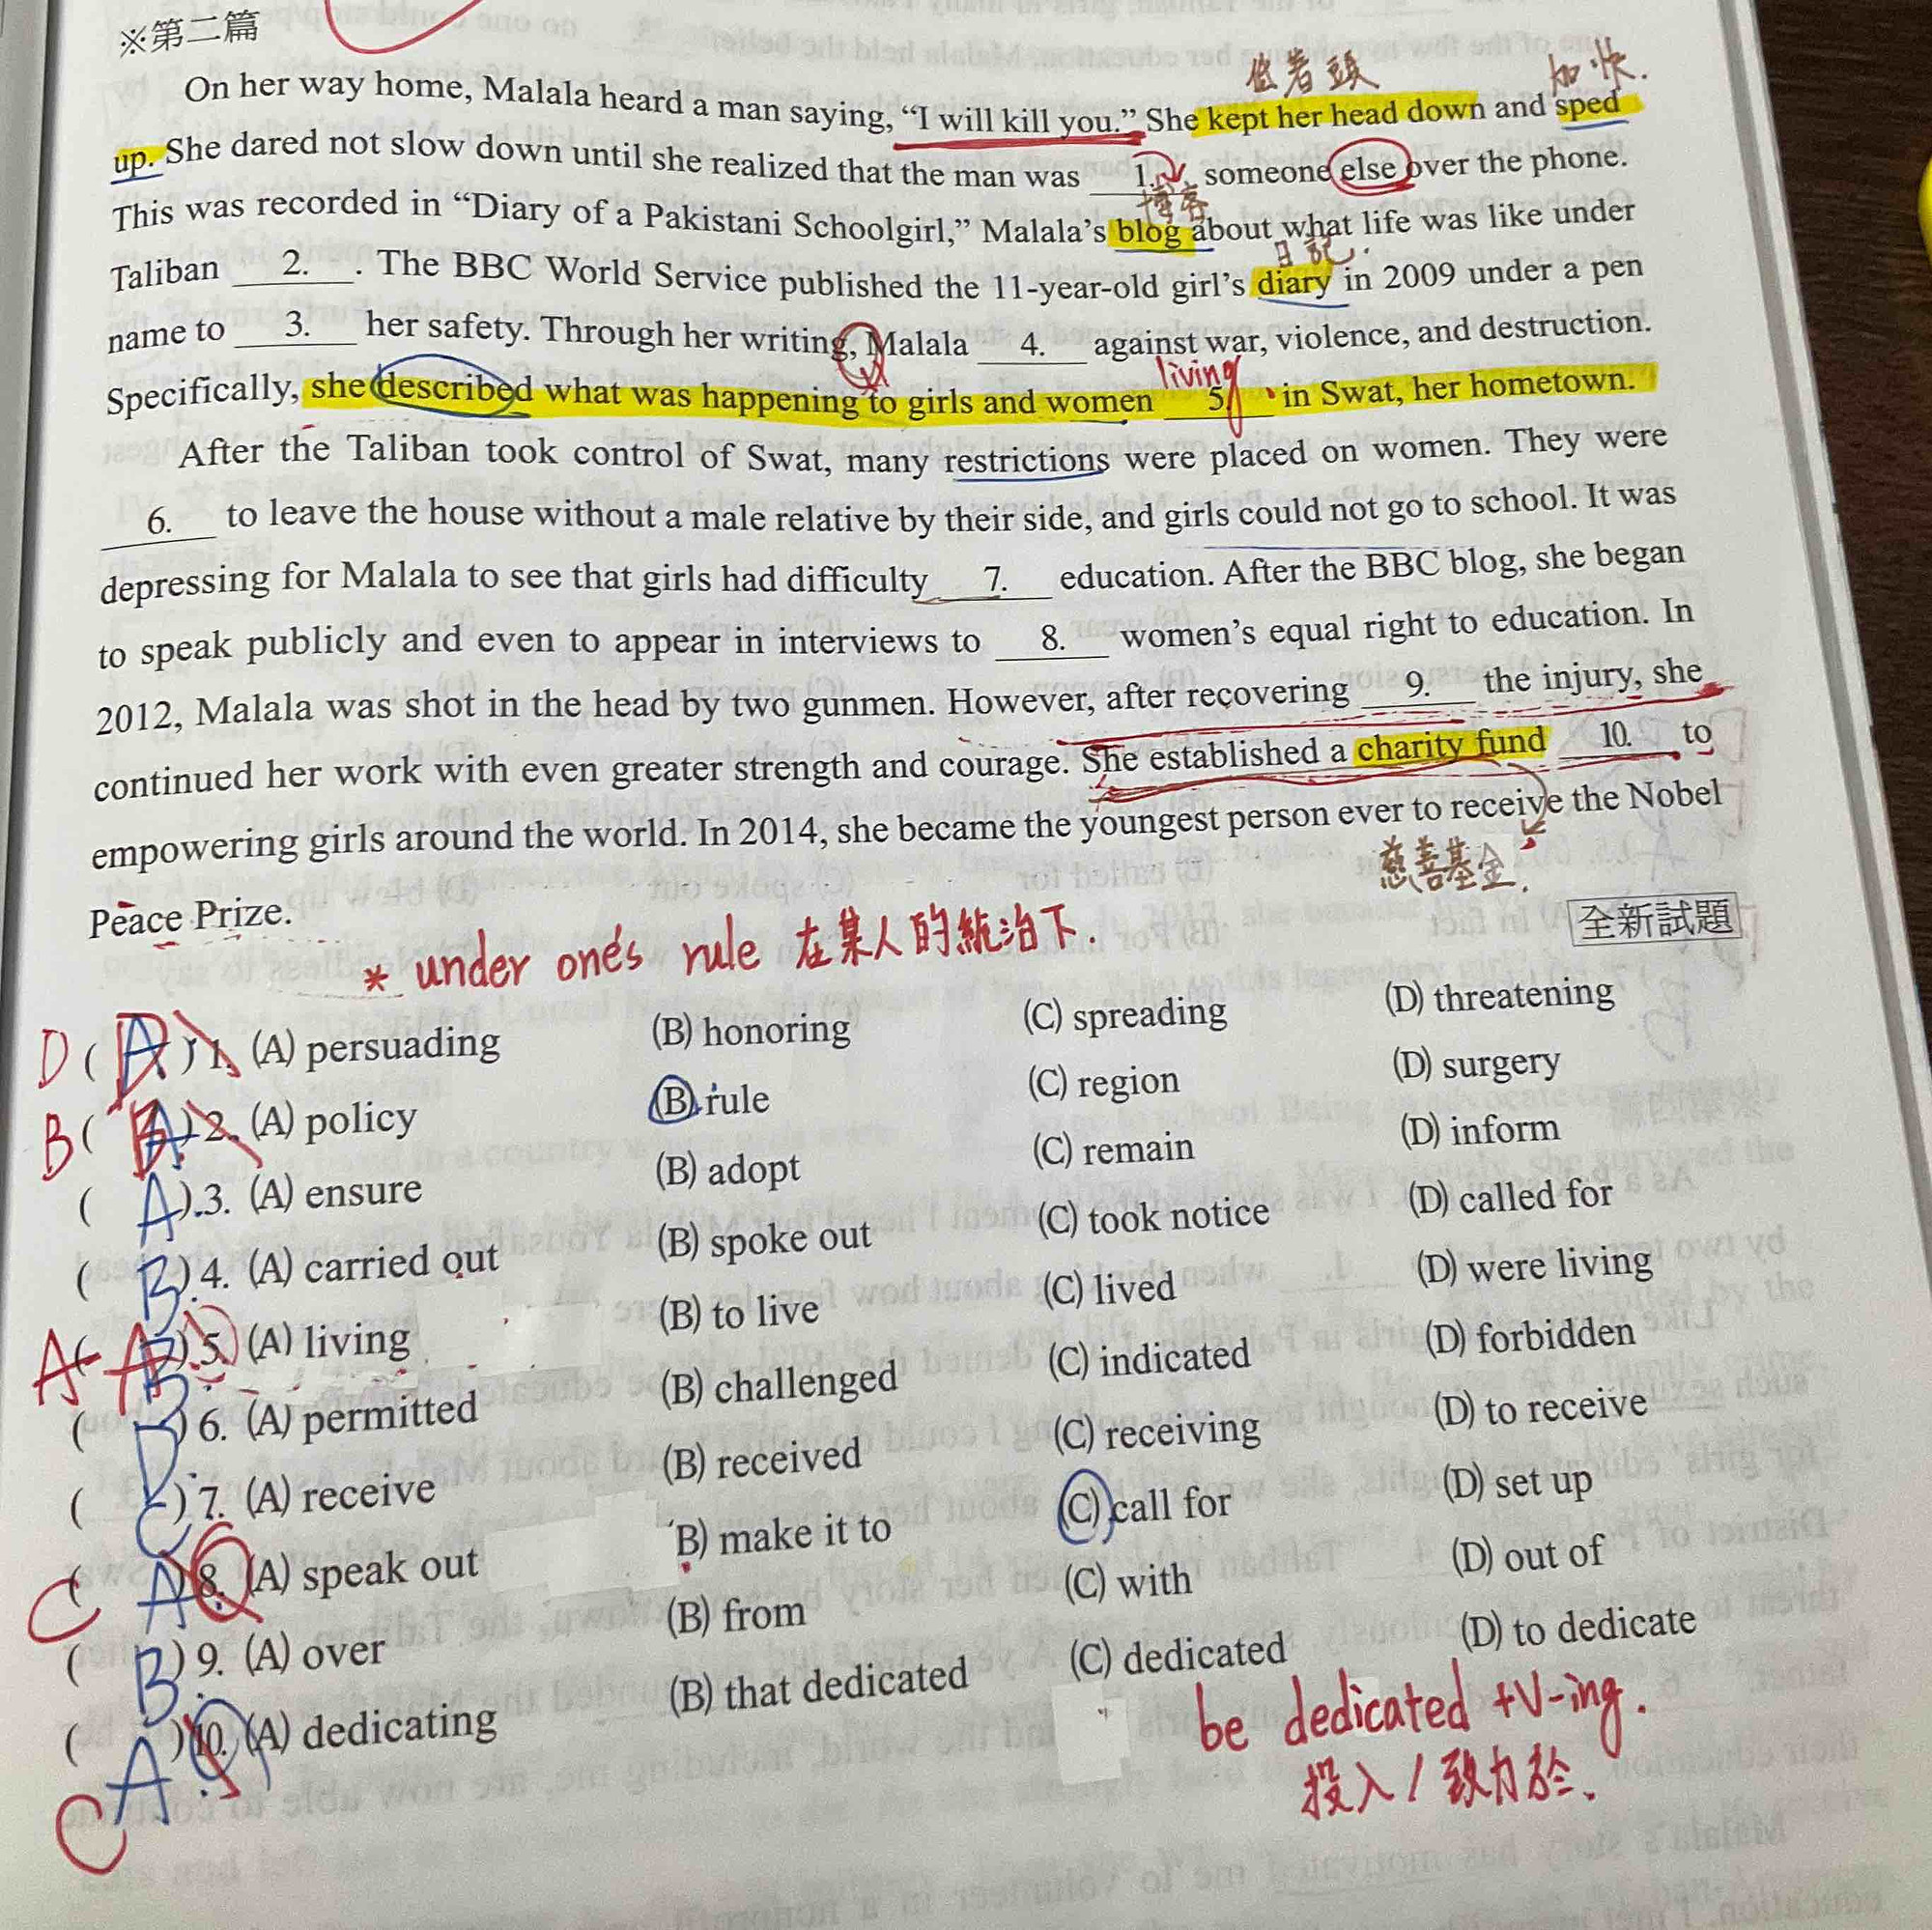 ※第二篇
低著頭 加快.
On her way home, Malala heard a man saying, “I will kill you.” She kept her head down and sped
up. She dared not slow down until she realized that the man was 1. someone else over the phone.
博客
This was recorded in “Diary of a Pakistani Schoolgirl,” Malala’s blog about what life was like under
日記.
Taliban 2. . The BBC World Service published the 11-year-old girl’s diary in 2009 under a pen
name to 3. her safety. Through her writing, Malala 4. against war, violence, and destruction.
living
Specifically, she described what was happening to girls and women 5. in Swat, her hometown.
After the Taliban took control of Swat, many restrictions were placed on women. They were
6. to leave the house without a male relative by their side, and girls could not go to school. It was
depressing for Malala to see that girls had difficulty 7. education. After the BBC blog, she began
to speak publicly and even to appear in interviews to 8. women’s equal right to education. In
2012, Malala was shot in the head by two gunmen. However, after recovering 9. the injury, she
continued her work with even greater strength and courage. She established a charity fund 10. to
empowering girls around the world. In 2014, she became the youngest person ever to receive the Nobel
慈善基金.
Peace Prize.
全新試題
* under one's rule 在某人的統治下.
D ( A ) 1. (A) persuading (B) honoring (C) spreading (D) threatening
B ( A ) 2. (A) policy (B) rule (C) region (D) surgery
( A ) 3. (A) ensure (B) adopt (C) remain (D) inform
( B ) 4. (A) carried out (B) spoke out (C) took notice (D) called for
A ( B ) 5. (A) living (B) to live (C) lived (D) were living
( D ) 6. (A) permitted (B) challenged (C) indicated (D) forbidden
( C ) 7. (A) receive (B) received (C) receiving (D) to receive
C ( A ) 8. (A) speak out (B) make it to (C) call for (D) set up
( B ) 9. (A) over (B) from (C) with (D) out of
C ( A ) 10. (A) dedicating (B) that dedicated (C) dedicated (D) to dedicate
be dedicated +V-ing.
投入/致力於.